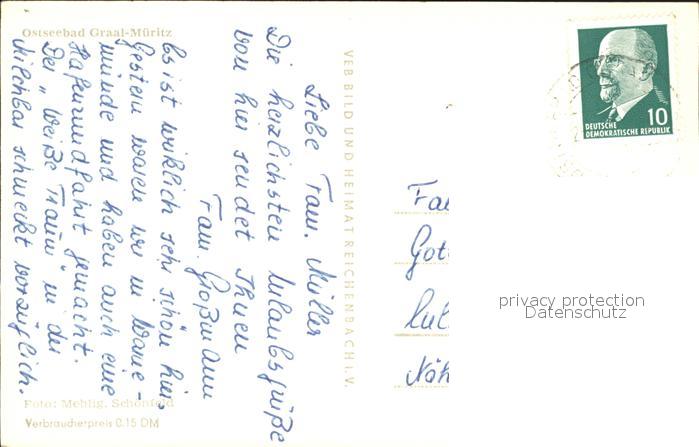 Ostseebad Graal-Müritz
Liebe Fam. Müller
Die herzlichsten Urlaubsgrüße
von hier sendet Ihnen
Fam. Großmann
Es ist wirklich sehr schön hier,
Gestern waren wir in Warne-
münde und haben auch eine
Hafenrundfahrt gemacht.
Der „Weiße Traum" in der
Milchbar schmeckt vorzüglich.
Foto: Mehlig, Schönfeld
Verbraucherpreis 0.15 DM
VEB BILD UND HEIMAT REICHENBACH I. V.
10
DEUTSCHE
DEMOKRATISCHE REPUBLIK
privacy protection
Datenschutz